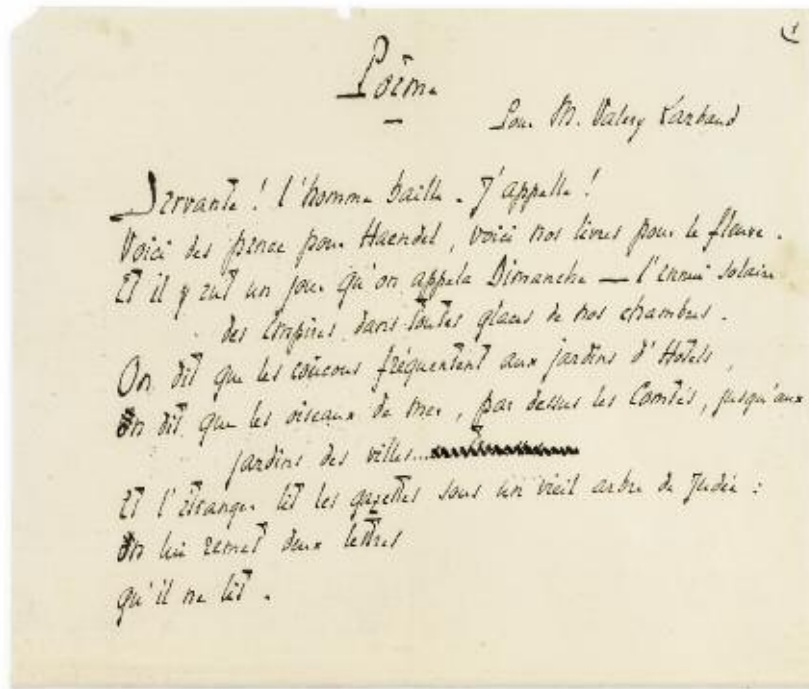 Poème
Pour M. Valery Larbaud
Servante ! l'homme baille. J'appelle !
Voici des pence pour Haendel, voici nos livres pour le fleuve.
Et il y eut un jour qu'on appela Dimanche — l'ennui solaire
des Empires dans toutes glaces de nos chambres.
On dit que les coucous fréquentent aux jardins d'Hotels,
On dit que les oiseaux de mer, par dessus les Comtés, jusqu'aux
jardins des villes...
Et l'étranger lit les gazettes sous un vieil arbre de Judée :
On lui remet deux lettres
qu'il ne lit.